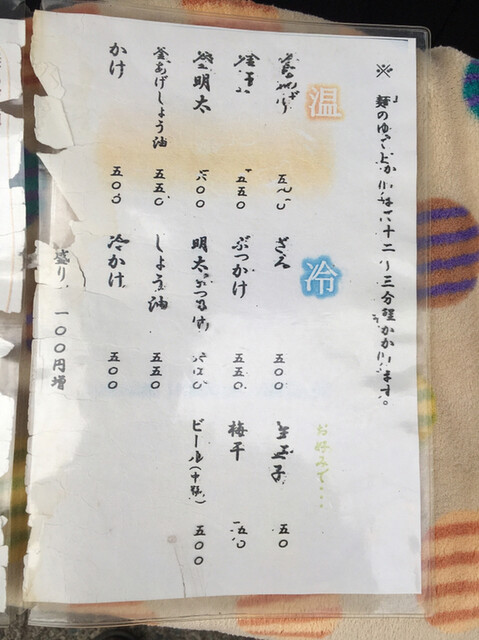 ※ 麺のゆで上がりには十二〜三分程かかります。
温
釜あげ 五〇〇
釜玉 五五〇
釜明太 六〇〇
釜あげしょう油 五五〇
かけ 五〇〇
冷
ざる 五〇〇
ぶっかけ 五五〇
明太ぶっかけ
しょう油 五五〇
冷かけ 五〇〇
お好みで・・・
生玉子 五〇
梅干 五〇
ビール(中瓶) 五〇〇
盛り 一〇〇円増